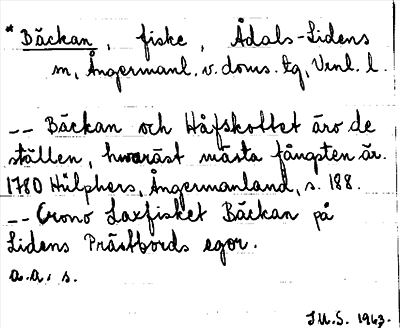 * Bäckan, fiske, Ådals-Lidens
m, Ångermanl. v. doms. tg, Vnl. l.
-- Bäckan och Håfskottet äro de
ställen, hwaräst mästa fångsten är.
1780 Hülphers, Ångermanland, s. 188.
-- Crono Laxfisket Bäckan på
Lidens Prästbords egor.
a.a. s.
J.U.S. 1963.